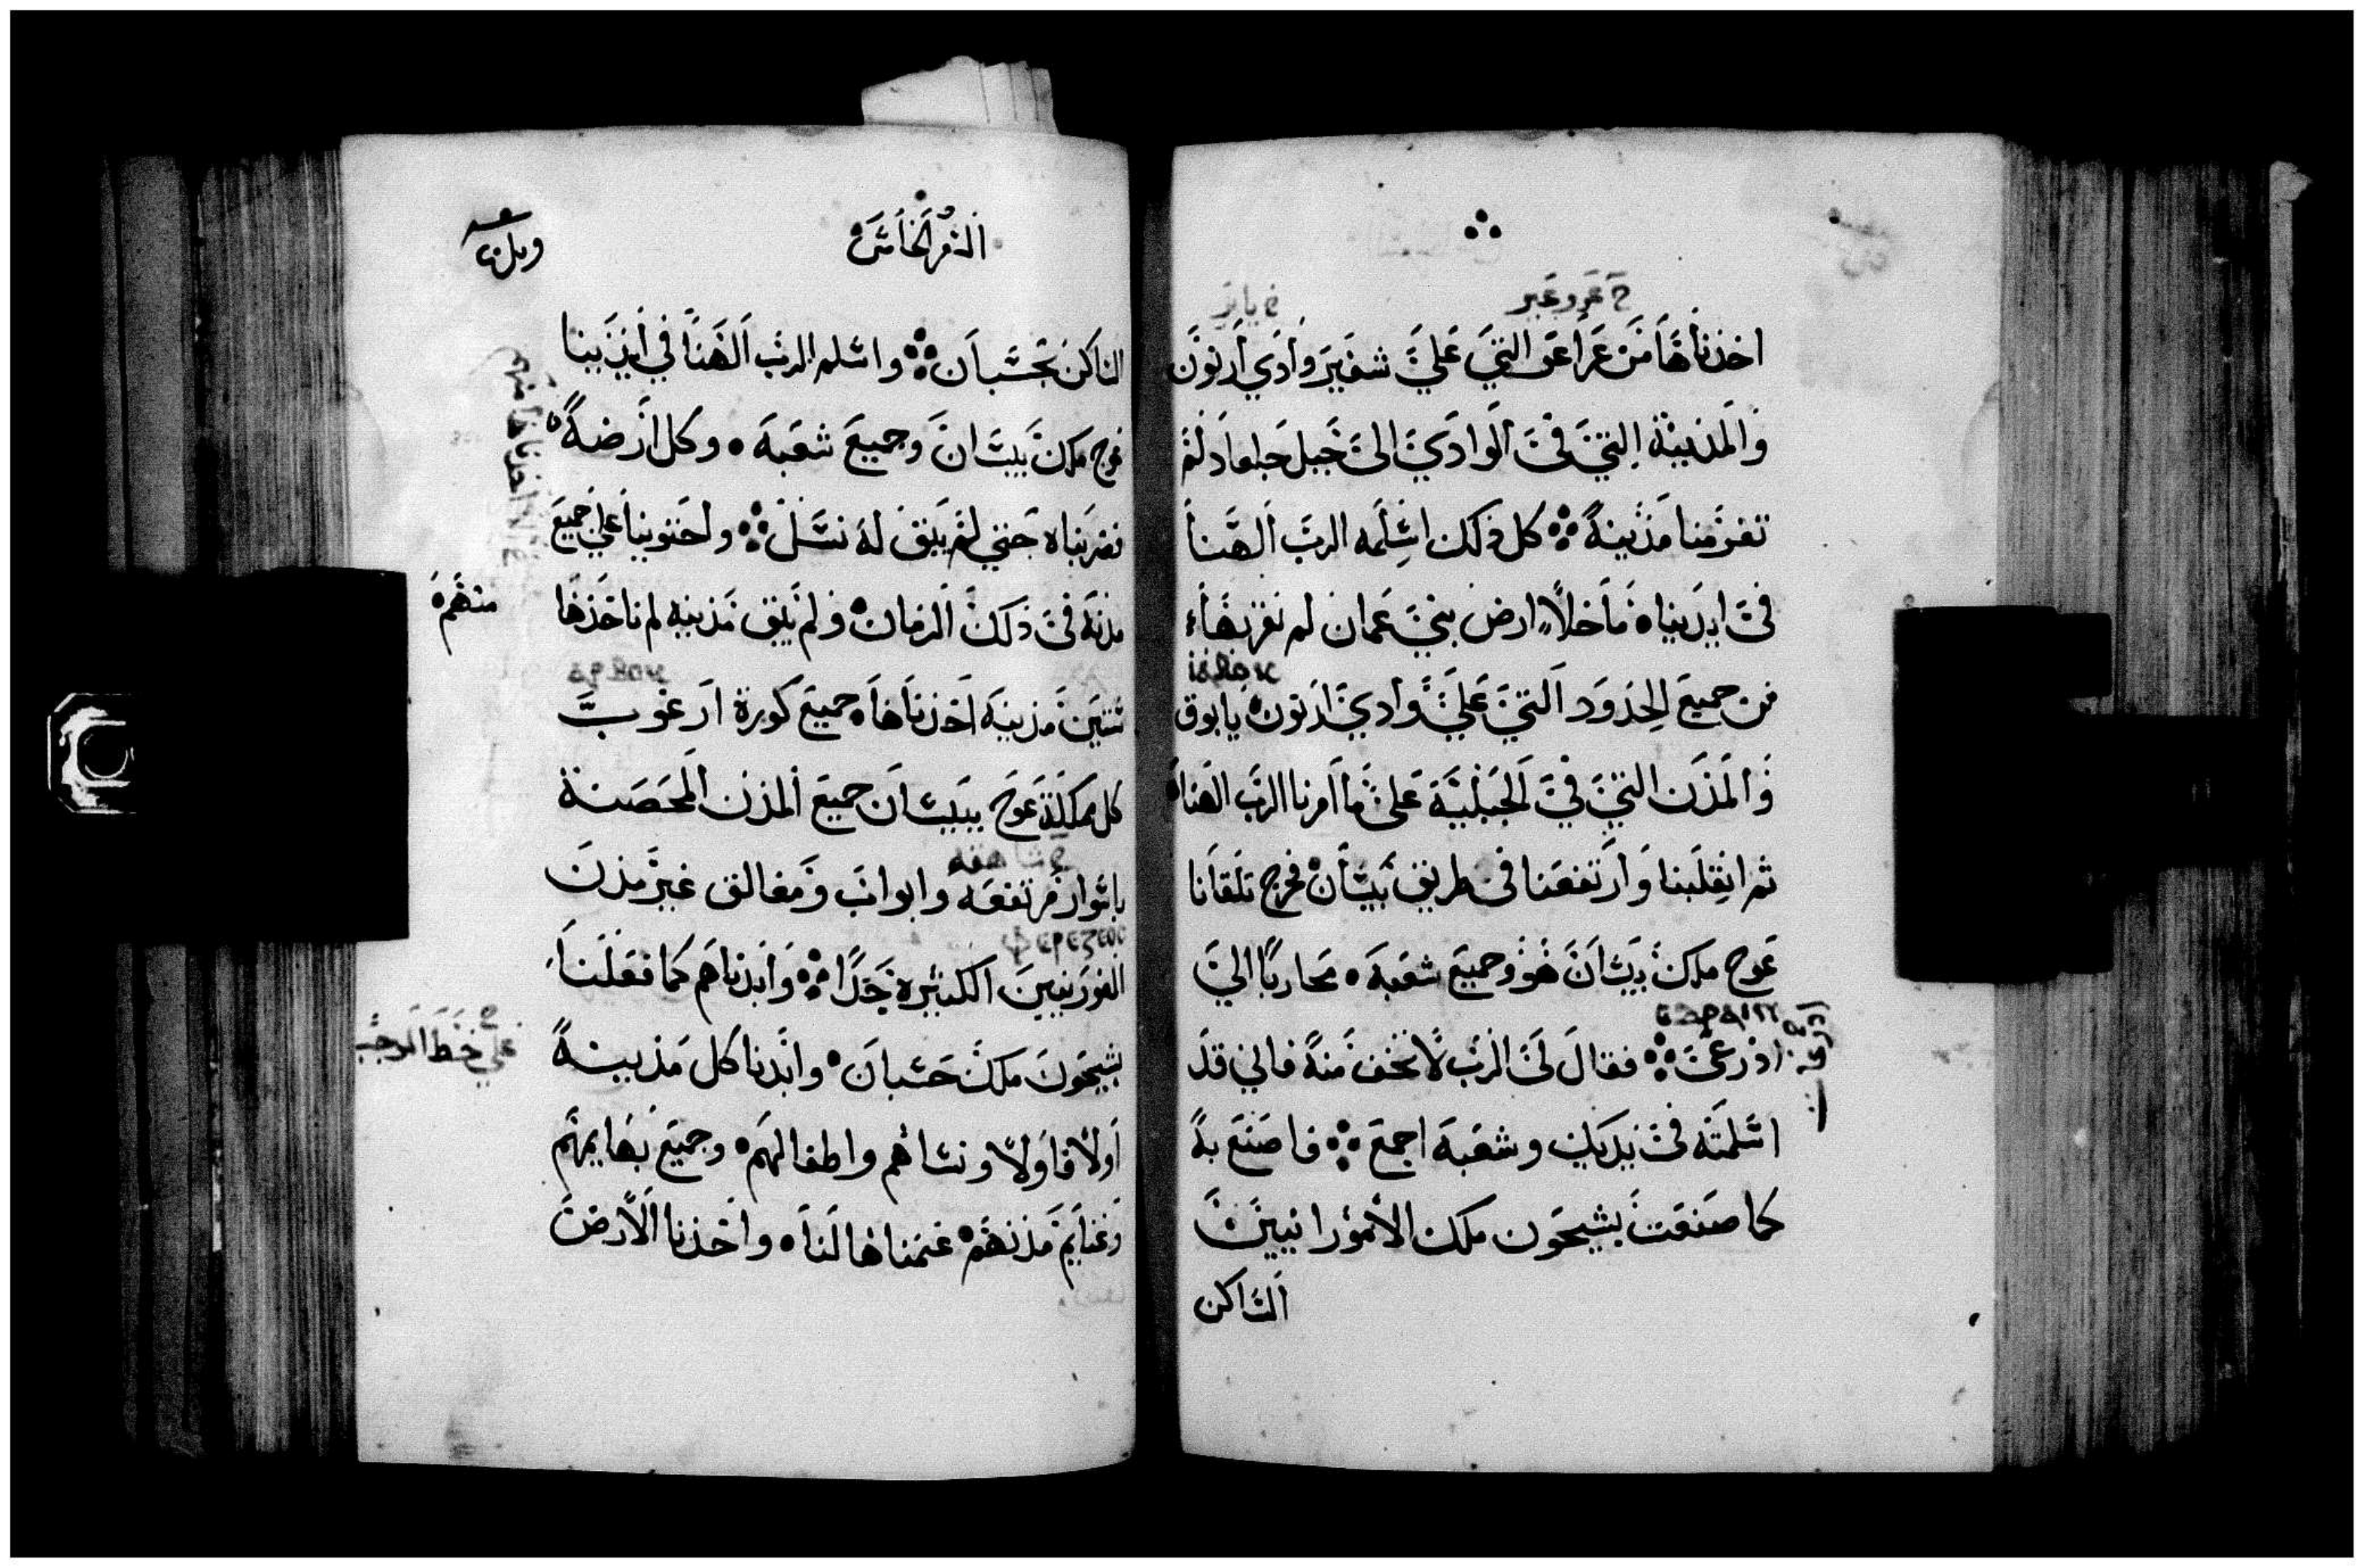 ح عرو عير
اخذناها من عراعر التي على شفير وادي ارنون
والمدينة التي في الوادي الى جبل جلعاد لم
تفر منا مدينة ܀ كل ذلك اسلمه الرب الهنا
في ايدينا ه ما خلا ارض بني عمان لم نقربها
من جميع الحدود التي على وادي ارنون يابوق
والمدن التي في الجبلية على ما امرنا الرب الهنا ه
ثم انقلبنا وارتفعنا في طريق بيسان ه فخرج تلقانا
عوج ملك بيسان هو وجميع شعبه ه محاربا الي
اذرعي ܀ فقال لي الرب لا تخف منه فاني قد
اسلمته في يديك وشعبه اجمع ܀ فاصنع به
كما صنعت بشيحون ملك الامورانيين
الساكن
السفر الخامس
الساكن بحسبان ܀ واسلم الرب الهنا في ايدينا
عوج ملك بيسان وجميع شعبه ه وكل ارضه ه
فضربناه حتي لم يبق له نسل ܀ واحتوينا علي جميع
مدنه في ذلك الزمان ه ولم يبق مدينه لم ناخذها
منهم ه
ستين مدينه اخذناها ه جميع كورة ارغوب
كل مملكة عوج ببيسان جميع المدن المحصنة
شاهقه
باسوار مرتفعه وابواب ومغالق غير مدن
ⲫⲉⲣⲉⲍⲉⲟⲥ
الفرزيين الكثيرة جدا ܀ وابدناهم كما فعلنا
بشيحون ملك حسبان ه وابدنا كل مدينة
اولا فاولا ونساهم واطفالهم ه وجميع بهايمهم
وغنايم مدنهم ه غنمناها لنا ه واخذنا الارض